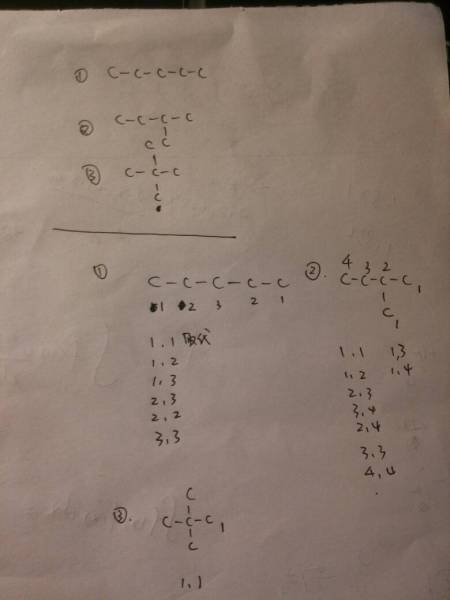 ① C-C-C-C-C
② C-C-C-C
C C
③ C-C-C
C
① ②.
4 3 2
C-C-C-C-C C-C-C-C 1
1 2 3 2 1 C
1
1,1 取代 1,1 1,3
1,2 1,2 1,4
1,3 2,3
2,3 3,4
2,2 2,4
3,3 3,3
4,4
C
③. C-C-C 1
C
1,1